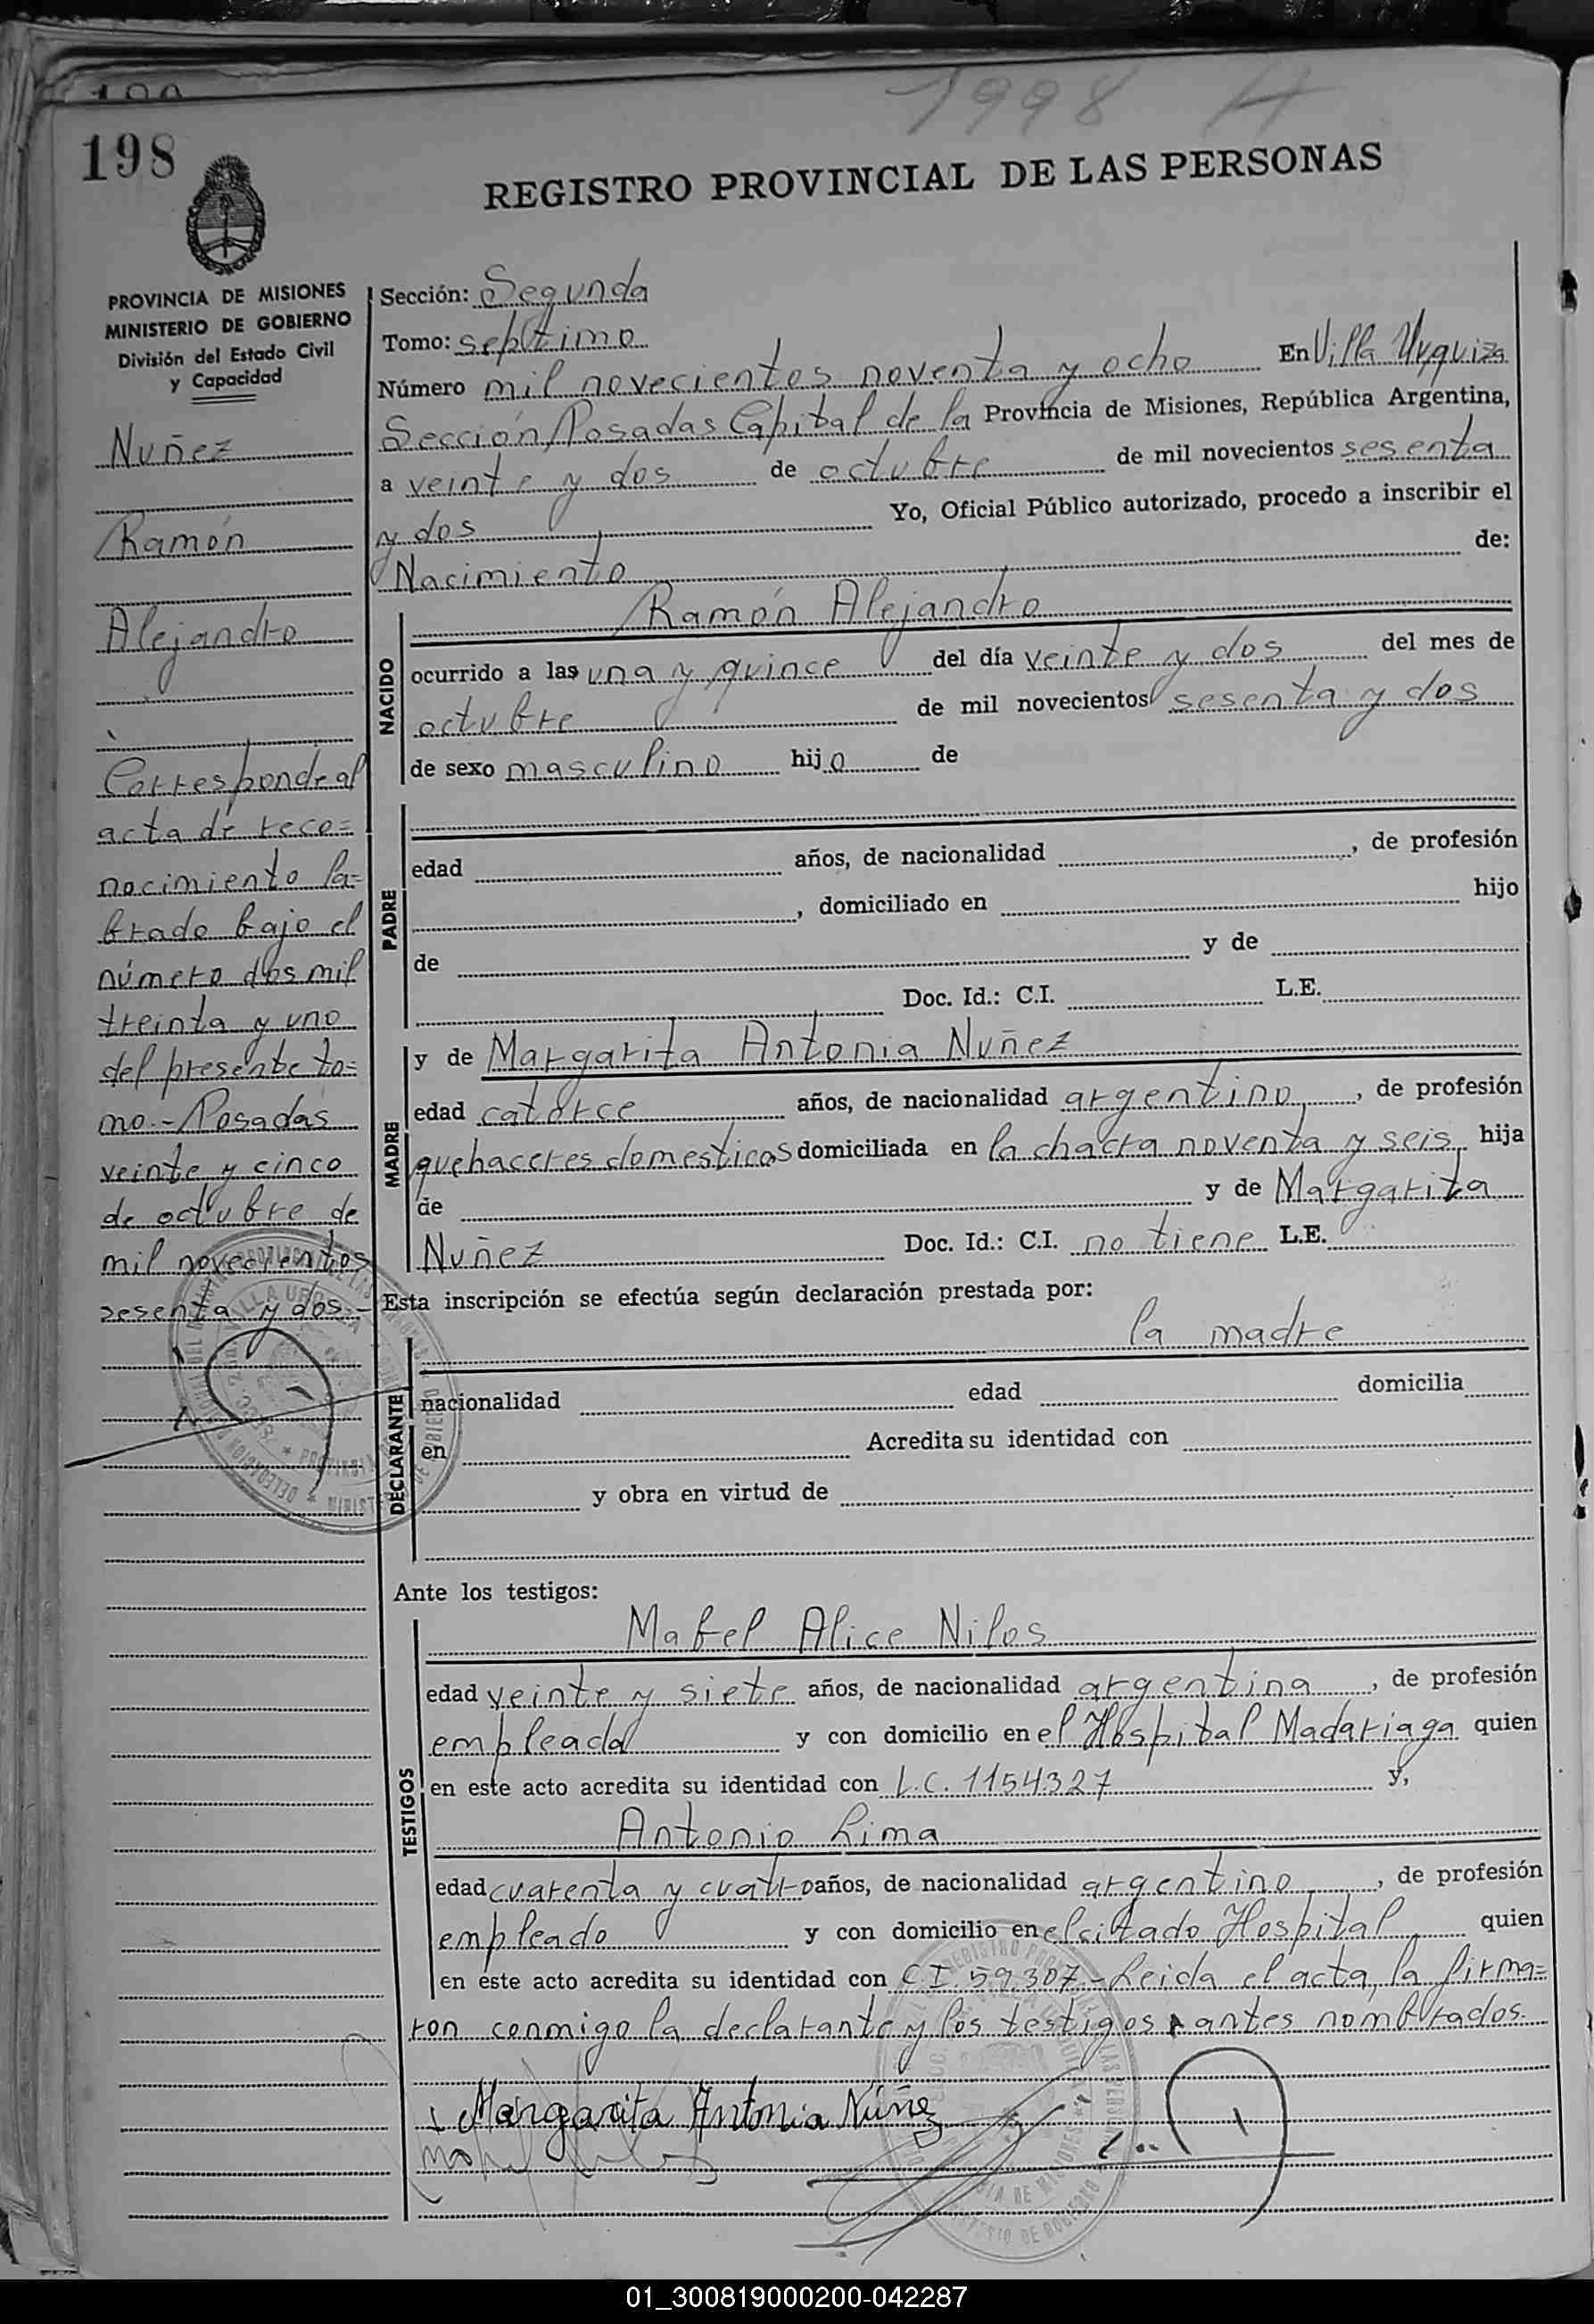 1998 A
198
REGISTRO PROVINCIAL DE LAS PERSONAS
PROVINCIA DE MISIONES
MINISTERIO DE GOBIERNO
División del Estado Civil
y Capacidad
Nuñez
Ramón
Alejandro
Corresponde al
acta de reco=
nocimiento la=
brado bajo el
número dos mil
treinta y uno
del presente to=
mo.- Posadas
veinte y cinco
de octubre de
mil novecientos
sesenta y dos.-
Sección: Segunda
Tomo: septimo
Número mil novecientos noventa y ocho En Villa Urquiza
Sección, Posadas Capital de la Provincia de Misiones, República Argentina,
a veinte y dos de octubre de mil novecientos sesenta
y dos Yo, Oficial Público autorizado, procedo a inscribir el
Nacimiento de:
NACIDO
Ramón Alejandro
ocurrido a las una y quince del día veinte y dos del mes de
octubre de mil novecientos sesenta y dos
de sexo masculino hijo de
PADRE
edad años, de nacionalidad , de profesión
, domiciliado en hijo
de y de
Doc. Id.: C.I. L.E.
MADRE
y de Margarita Antonia Nuñez
edad catorce años, de nacionalidad argentino, de profesión
quehaceres domesticos domiciliada en la chacra noventa y seis hija
de y de Margarita
Nuñez Doc. Id.: C.I. no tiene L.E.
Esta inscripción se efectúa según declaración prestada por:
la madre
DECLARANTE
nacionalidad edad domicilia
en Acredita su identidad con
y obra en virtud de
Ante los testigos:
TESTIGOS
Mabel Alice Nilos
edad veinte y siete años, de nacionalidad argentina, de profesión
empleada y con domicilio en el Hospital Madariaga quien
en este acto acredita su identidad con L.C. 1154327 y,
Antonio Lima
edad cuarenta y cuatro años, de nacionalidad argentino, de profesión
empleado y con domicilio en el citado Hospital quien
en este acto acredita su identidad con C.I. 59307 - Leida el acta, la firma=
ron conmigo la declarante y los testigos antes nombrados.
Margarita Antonia Núñez
01_300819000200-042287